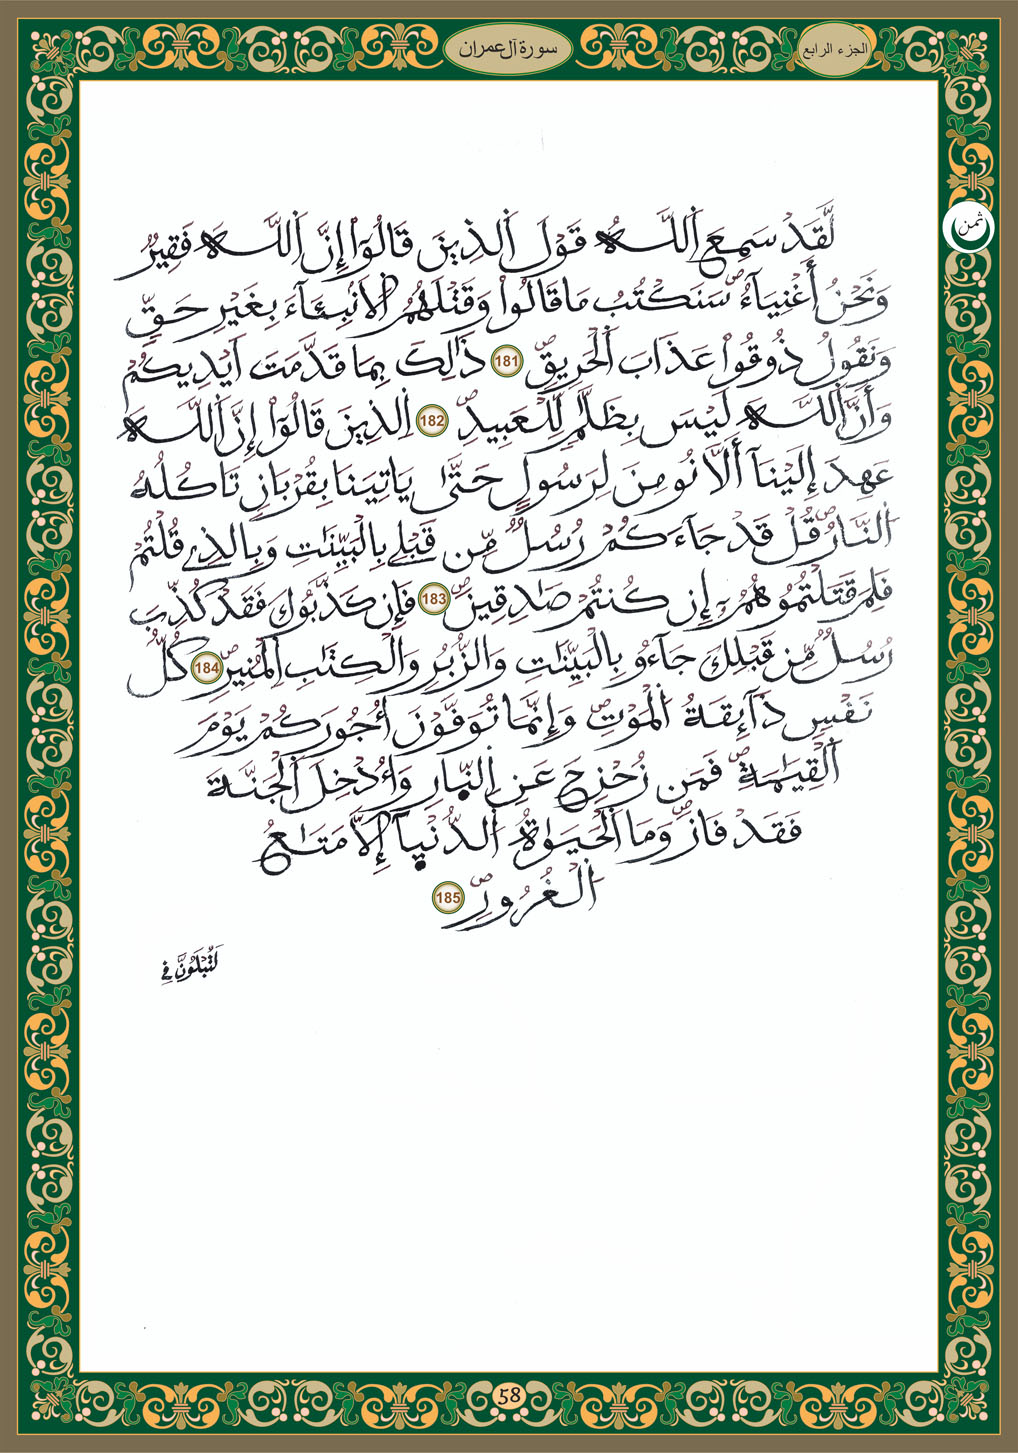 الجزء الرابع
سورة آل عمران
ثمن
لَّقَدْ سَمِعَ اَللَّهُ قَوْلَ اَلذِينَ قَالُوٓاْ إِنَّ اَللَّهَ فَقِيرٌ
وَنَحْنُ أَغْنِيَآءُۖ سَنَكْتُبُ مَا قَالُواْ وَقَتْلَهُمُ اُلَانۢبِئَآءَ بِغَيْرِ حَقّٖ
وَنَقُولُ ذُوقُواْ عَذَابَ اَلْحَرِيقِۖ 181 ذَٰلِكَ بِمَا قَدَّمَتَ اَيْدِيكُمْ
وَأَنَّ اَللَّهَ لَيْسَ بِظَلَّٰمٖ لِّلْعَبِيدِۖ 182 اِلذِينَ قَالُوٓاْ إِنَّ اَللَّهَ
عَهِدَ إِلَيْنَآ أَلَّا نُومِنَ لِرَسُولٍ حَتَّىٰ يَاتِيَنَا بِقُرْبَانٖ تَاكُلُهُ
اُلنَّارُۖ قُلْ قَدْ جَآءَكُمْ رُسُلٞ مِّن قَبْلِے بِالْبَيِّنَٰتِ وَبِالذِے قُلْتُمْ
فَلِمَ قَتَلْتُمُوهُمُۥٓ إِن كُنتُمْ صَٰدِقِينَۖ 183 فَإِن كَذَّبُوكَ فَقَدْ كُذِّبَ
رُسُلٞ مِّن قَبْلِكَ جَآءُو بِالْبَيِّنَٰتِ وَالزُّبُرِ وَالْكِتَٰبِ اِلْمُنِيرِۖ 184 كُلُّ
نَفْسٖ ذَآئِقَةُ اُلْمَوْتِۖ وَإِنَّمَا تُوَفَّوْنَ أُجُورَكُمْ يَوْمَ
اَلْقِيَٰمَةِۖ فَمَن زُحْزِحَ عَنِ اِلنّ۪ارِ وَأُدْخِلَ اَلْجَنَّةَ
فَقَدْ فَازَۖ وَمَا اَلْحَيَوٰةُ اُلدُّنْي۪آ إِلَّا مَتَٰعُ
اُلْغُرُورِۖ 185
لَتُبْلَوُنَّ فِے
58